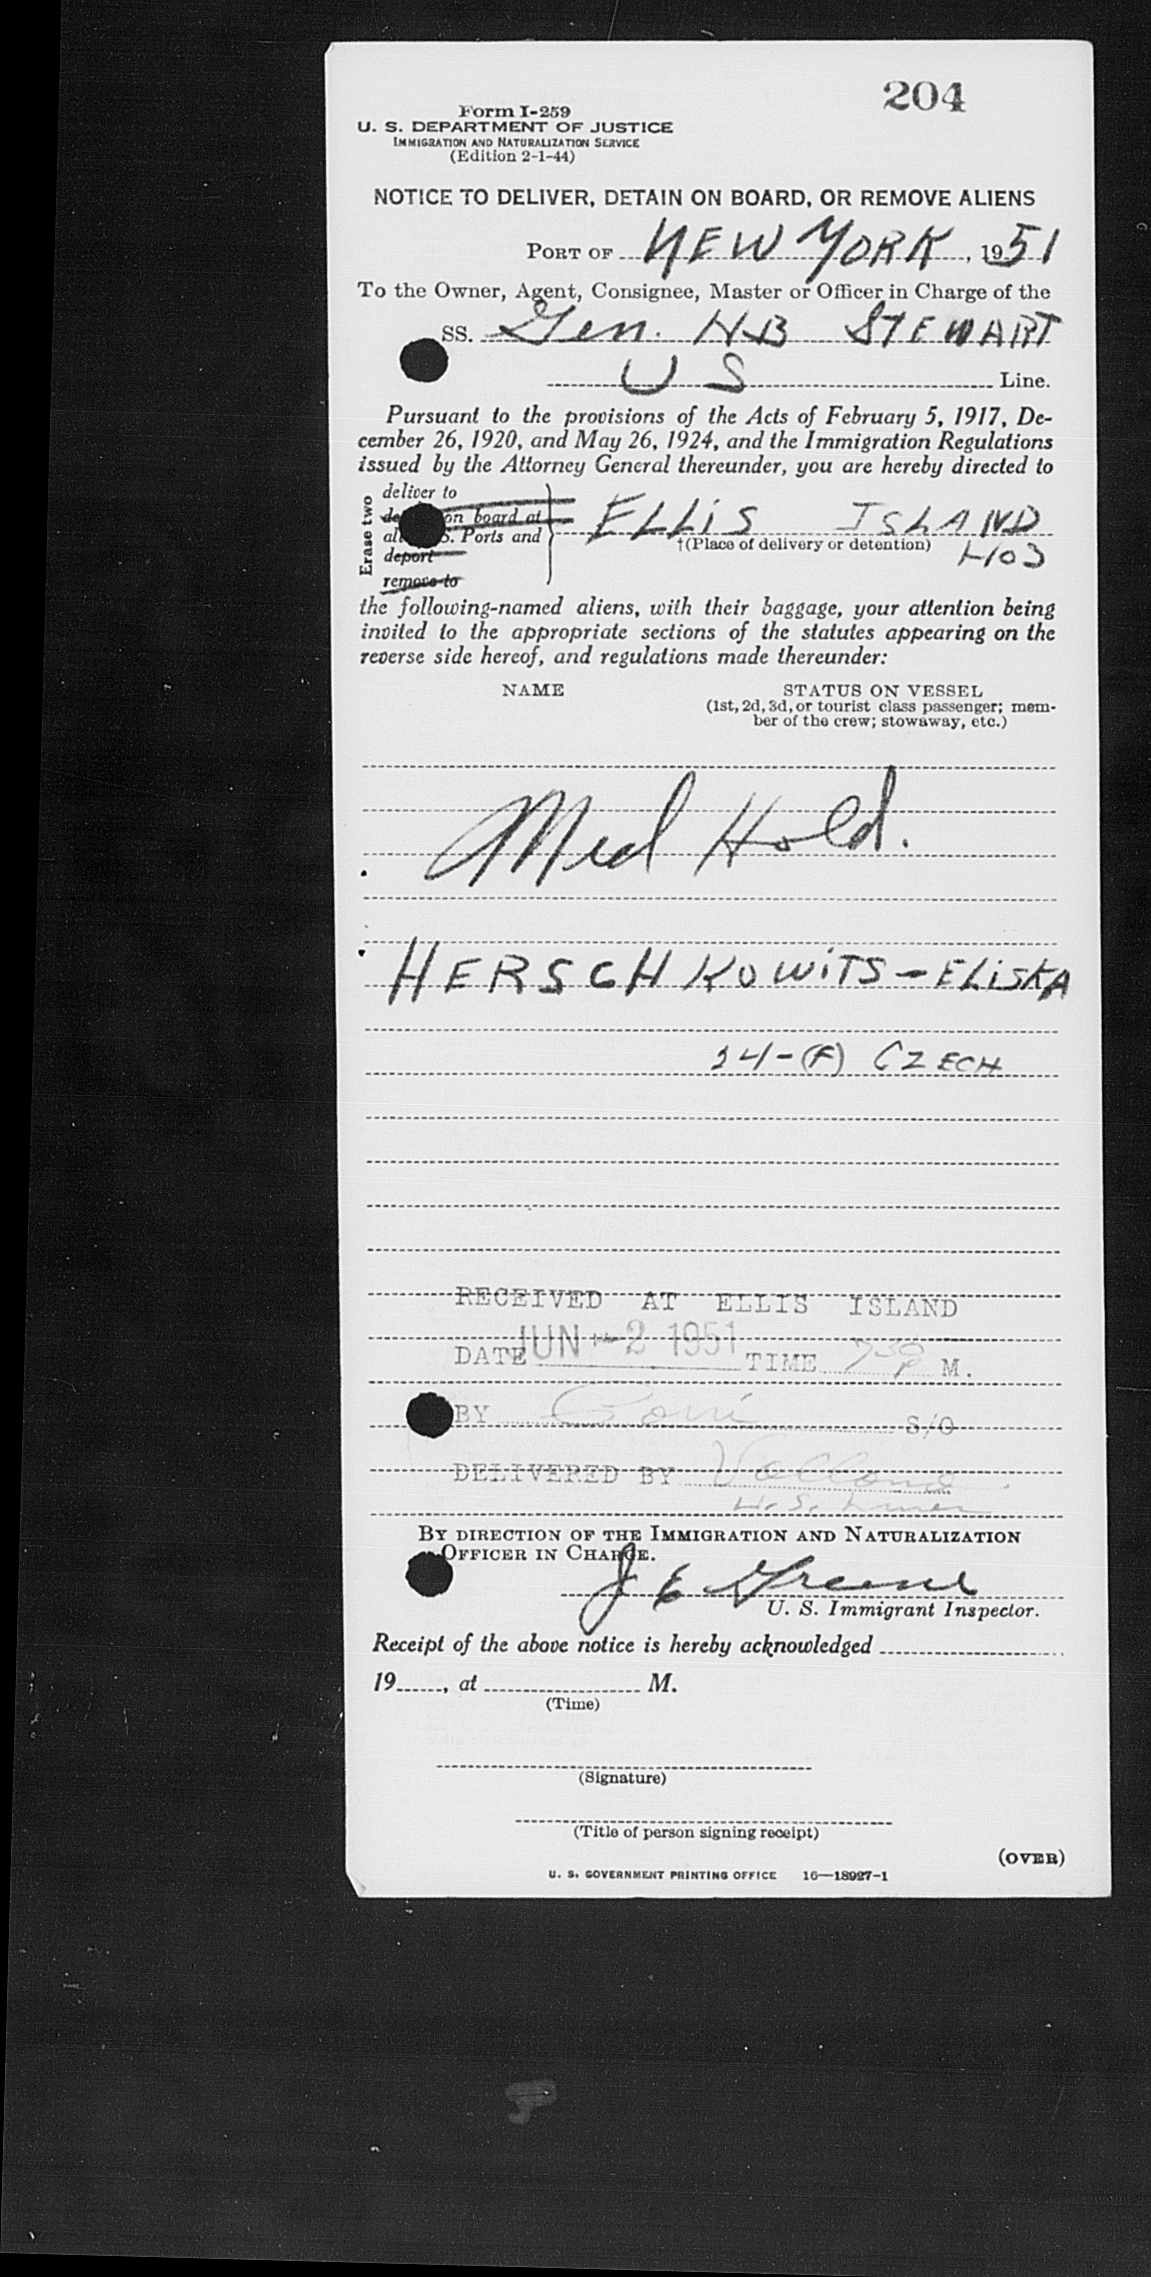 204
Form I-259
U. S. DEPARTMENT OF JUSTICE
IMMIGRATION AND NATURALIZATION SERVICE
(Edition 2-1-44)
NOTICE TO DELIVER, DETAIN ON BOARD, OR REMOVE ALIENS
PORT OF NEW YORK, 1951
To the Owner, Agent, Consignee, Master or Officer in Charge of the
SS. Gen. HB STEWART
US Line.
Pursuant to the provisions of the Acts of February 5, 1917, De-
cember 26, 1920, and May 26, 1924, and the Immigration Regulations
issued by the Attorney General thereunder, you are hereby directed to
Erase two
deliver to
on board at
S. Ports and
deport
remove to
ELLIS ISLAND
†(Place of delivery or detention)
HOS
the following-named aliens, with their baggage, your attention being
invited to the appropriate sections of the statutes appearing on the
reverse side hereof, and regulations made thereunder:
NAME STATUS ON VESSEL
(1st, 2d, 3d, or tourist class passenger; mem-
ber of the crew; stowaway, etc.)
Med Hold.
HERSCHKOWITS - ELISKA
24-(F) CZECH
RECEIVED AT ELLIS ISLAND
DATE JUN -2 1951 TIME 730 P M.
BY S/O
DELIVERED BY
U.S.
BY DIRECTION OF THE IMMIGRATION AND NATURALIZATION
OFFICER IN CHARGE.
J E Greene
U. S. Immigrant Inspector.
Receipt of the above notice is hereby acknowledged
19, at M.
(Time)
(Signature)
(Title of person signing receipt)
(OVER)
U. S. GOVERNMENT PRINTING OFFICE 16—18927-1